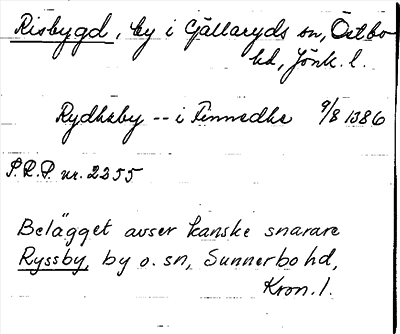 Risbygd, by i Gällaryds sn, Östbo
hd, Jönk. l.
Rydhsby -- i Finnedhe 9/8 1386
S.R.P. nr. 2355
Belägget avser kanske snarare
Ryssby, by o. sn, Sunnerbo hd,
Kron. l.